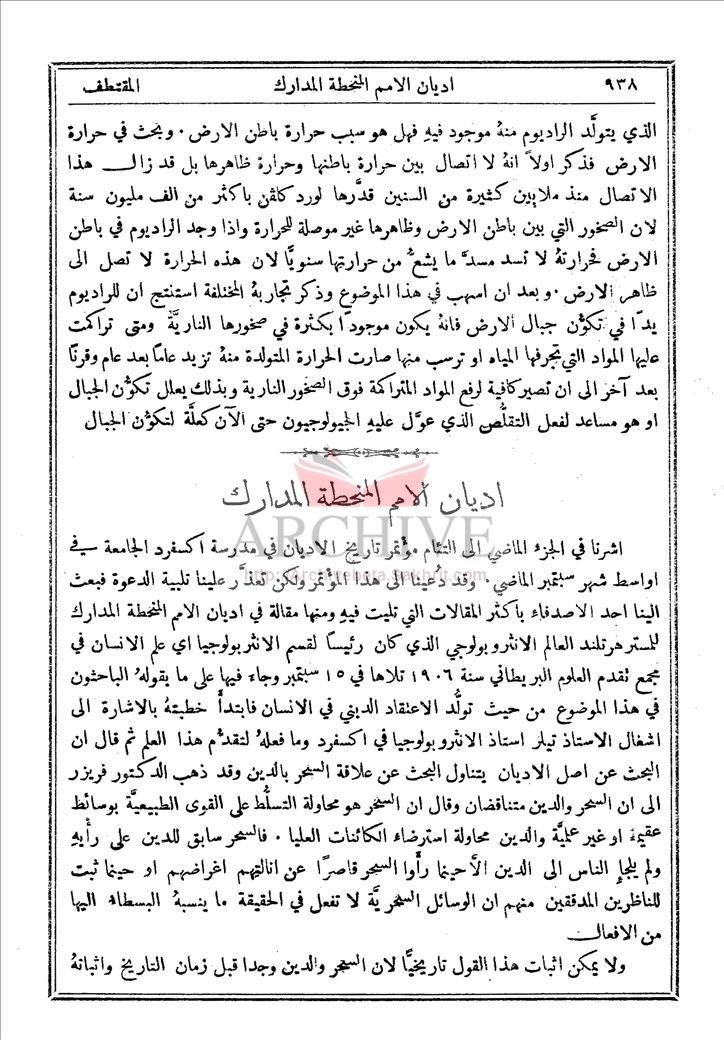 ٩٣٨ اديان الامم المنحطة المدارك المقتطف
الذي يتولَّد الراديوم منهُ موجود فيهِ فهل هو سبب حرارة باطن الارض . وبحث في حرارة
الارض فذكر اولاً انهُ لا اتصال بين حرارة باطنها وحرارة ظاهرها بل قد زال هذا
الاتصال منذ ملايين كثيرة من السنين قدَّرها لورد كلڤن باكثر من الف مليون سنة
لان الصخور التي بين باطن الارض وظاهرها غير موصلة للحرارة واذا وجد الراديوم في باطن
الارض فحرارتهُ لا تسد مسدَّ ما يشعُّ من حرارتها سنويًّا لان هذه الحرارة لا تصل الى
ظاهر الارض . وبعد ان اسهب في هذا الموضوع وذكر تجاربهُ المختلفة استنتج ان للراديوم
يدًا في تكوُّن جبال الارض فانهُ يكون موجودًا بكثرة في صخورها الناريَّة ومتى تراكمت
عليها المواد التي تجرفها المياه او ترسب منها صارت الحرارة المتولدة منهُ تزيد عامًا بعد عام وقرنًا
بعد آخر الى ان تصير كافية لرفع المواد المتراكمة فوق الصخور النارية وبذلك يعلل تكوُّن الجبال
او هو مساعد لفعل التقلُّص الذي عوَّل عليهِ الجيولوجيون حتى الآن كعلَّة لتكوُّن الجبال
اديان الامم المنحطة المدارك
ARCHIVE
http://Archivebeta.Sakhrit.com
اشرنا في الجزء الماضي الى التئام مؤتمر تاريخ الاديان في مدرسة اكسفرد الجامعة في
اواسط شهر سبتمبر الماضي . وقد دُعينا الى هذا المؤتمر ولكن تعذَّر علينا تلبية الدعوة فبعث
الينا احد الاصدقاء باكثر المقالات التي تليت فيهِ ومنها مقالة في اديان الامم المنحطة المدارك
للمستر هرتلند العالم الانثروبولوجي الذي كان رئيسًا لقسم الانثربولوجيا اي علم الانسان في
مجمع تقدم العلوم البريطاني سنة ١٩٠٦ تلاها في ١٥ سبتمبر وجاء فيها على ما يقولهُ الباحثون
في هذا الموضوع من حيث تولُّد الاعتقاد الديني في الانسان فابتدأَ خطبتهُ بالاشارة الى
اشغال الاستاذ تيلر استاذ الانثروبولوجيا في اكسفرد وما فعلهُ لتقدُّم هذا العلم ثم قال ان
البحث عن اصل الاديان يتناول البحث عن علاقة السحر بالدين وقد ذهب الدكتور فريزر
الى ان السحر والدين متناقضان وقال ان السحر هو محاولة التسلُّط على القوى الطبيعيَّة بوسائط
عقيمة او غير عمليَّة والدين محاولة استرضاء الكائنات العليا . فالسحر سابق للدين على رأْيهِ
ولم يلجإِ الناس الى الدين الاَّ حينما رأَوا السحر قاصرًا عن انالتهم اغراضهم او حينما ثبت
للناظرين المدققين منهم ان الوسائل السحريَّة لا تفعل في الحقيقة ما ينسبهُ البسطاء اليها
من الافعال
ولا يمكن اثبات هذا القول تاريخيًّا لان السحر والدين وجدا قبل زمان التاريخ واثباتهُ